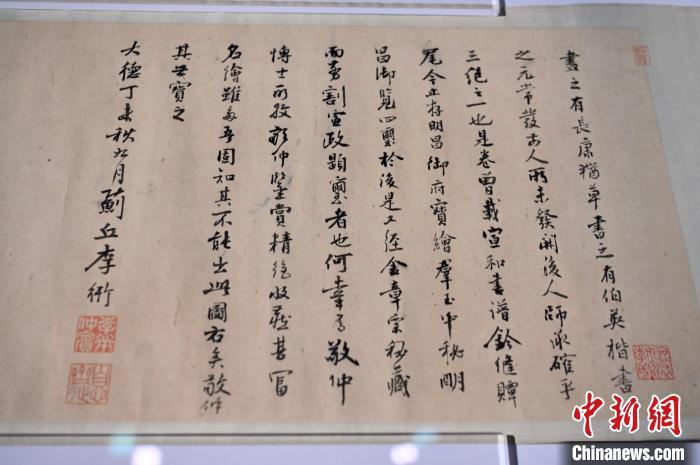 畫之有長康猶草書之有伯英楷書
之元常發古人所未發開後人師承確乎
三絕之一也是卷曾載宣和書譜鈐縫贉
尾今止存明昌御府寶繪羣玉中秘明
昌御覽四璽於後是又經金章宗秘藏
而劵割宣政題璽者也何幸為敬仲
博士所致敬仲鑒賞精絕收藏甚富
名繪雖多吾固知其不能出此圖右矣敬仲
其世寶之
大德丁未秋九月薊丘李衎
中新网
Chinanews.com